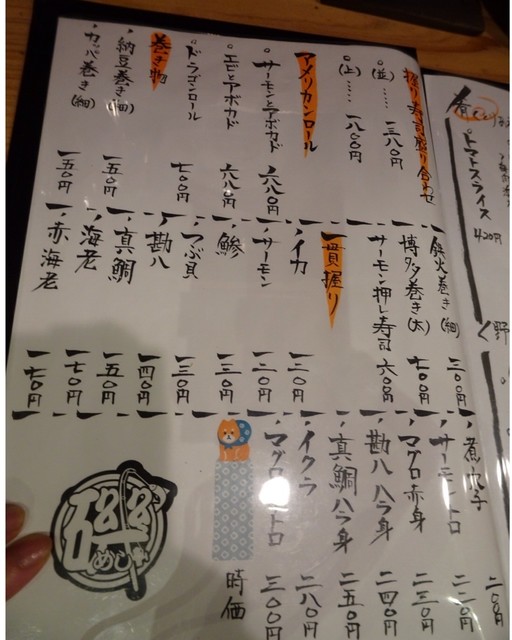 トマトスライス 420円
野
握り寿司盛り合わせ
(並)…… 一三八〇円
(上)…… 一八〇〇円
アメリカンロール
サーモンとアボカド 六八〇円
エビとアボカド 六八〇円
ドラゴンロール 七〇〇円
巻き物
納豆巻き(細) 一五〇円
カッパ巻き(細) 一五〇円
鉄火巻き(細) 三〇〇円
博多巻き(太) 七〇〇円
サーモン押し寿司 六〇〇円
一貫握り
イカ 一三〇円
サーモン 一三〇円
鯵 一三〇円
つぶ貝 一三〇円
勘八 一四〇円
真鯛 一五〇円
海老 一七〇円
赤海老 一七〇円
煮穴子 二〇〇円
サーモントロ 二二〇円
マグロ赤身 二三〇円
勘八ハラ身 二四〇円
真鯛ハラ身 二五〇円
イクラ 二八〇円
マグロ トロ 三〇〇円
時価
めしや